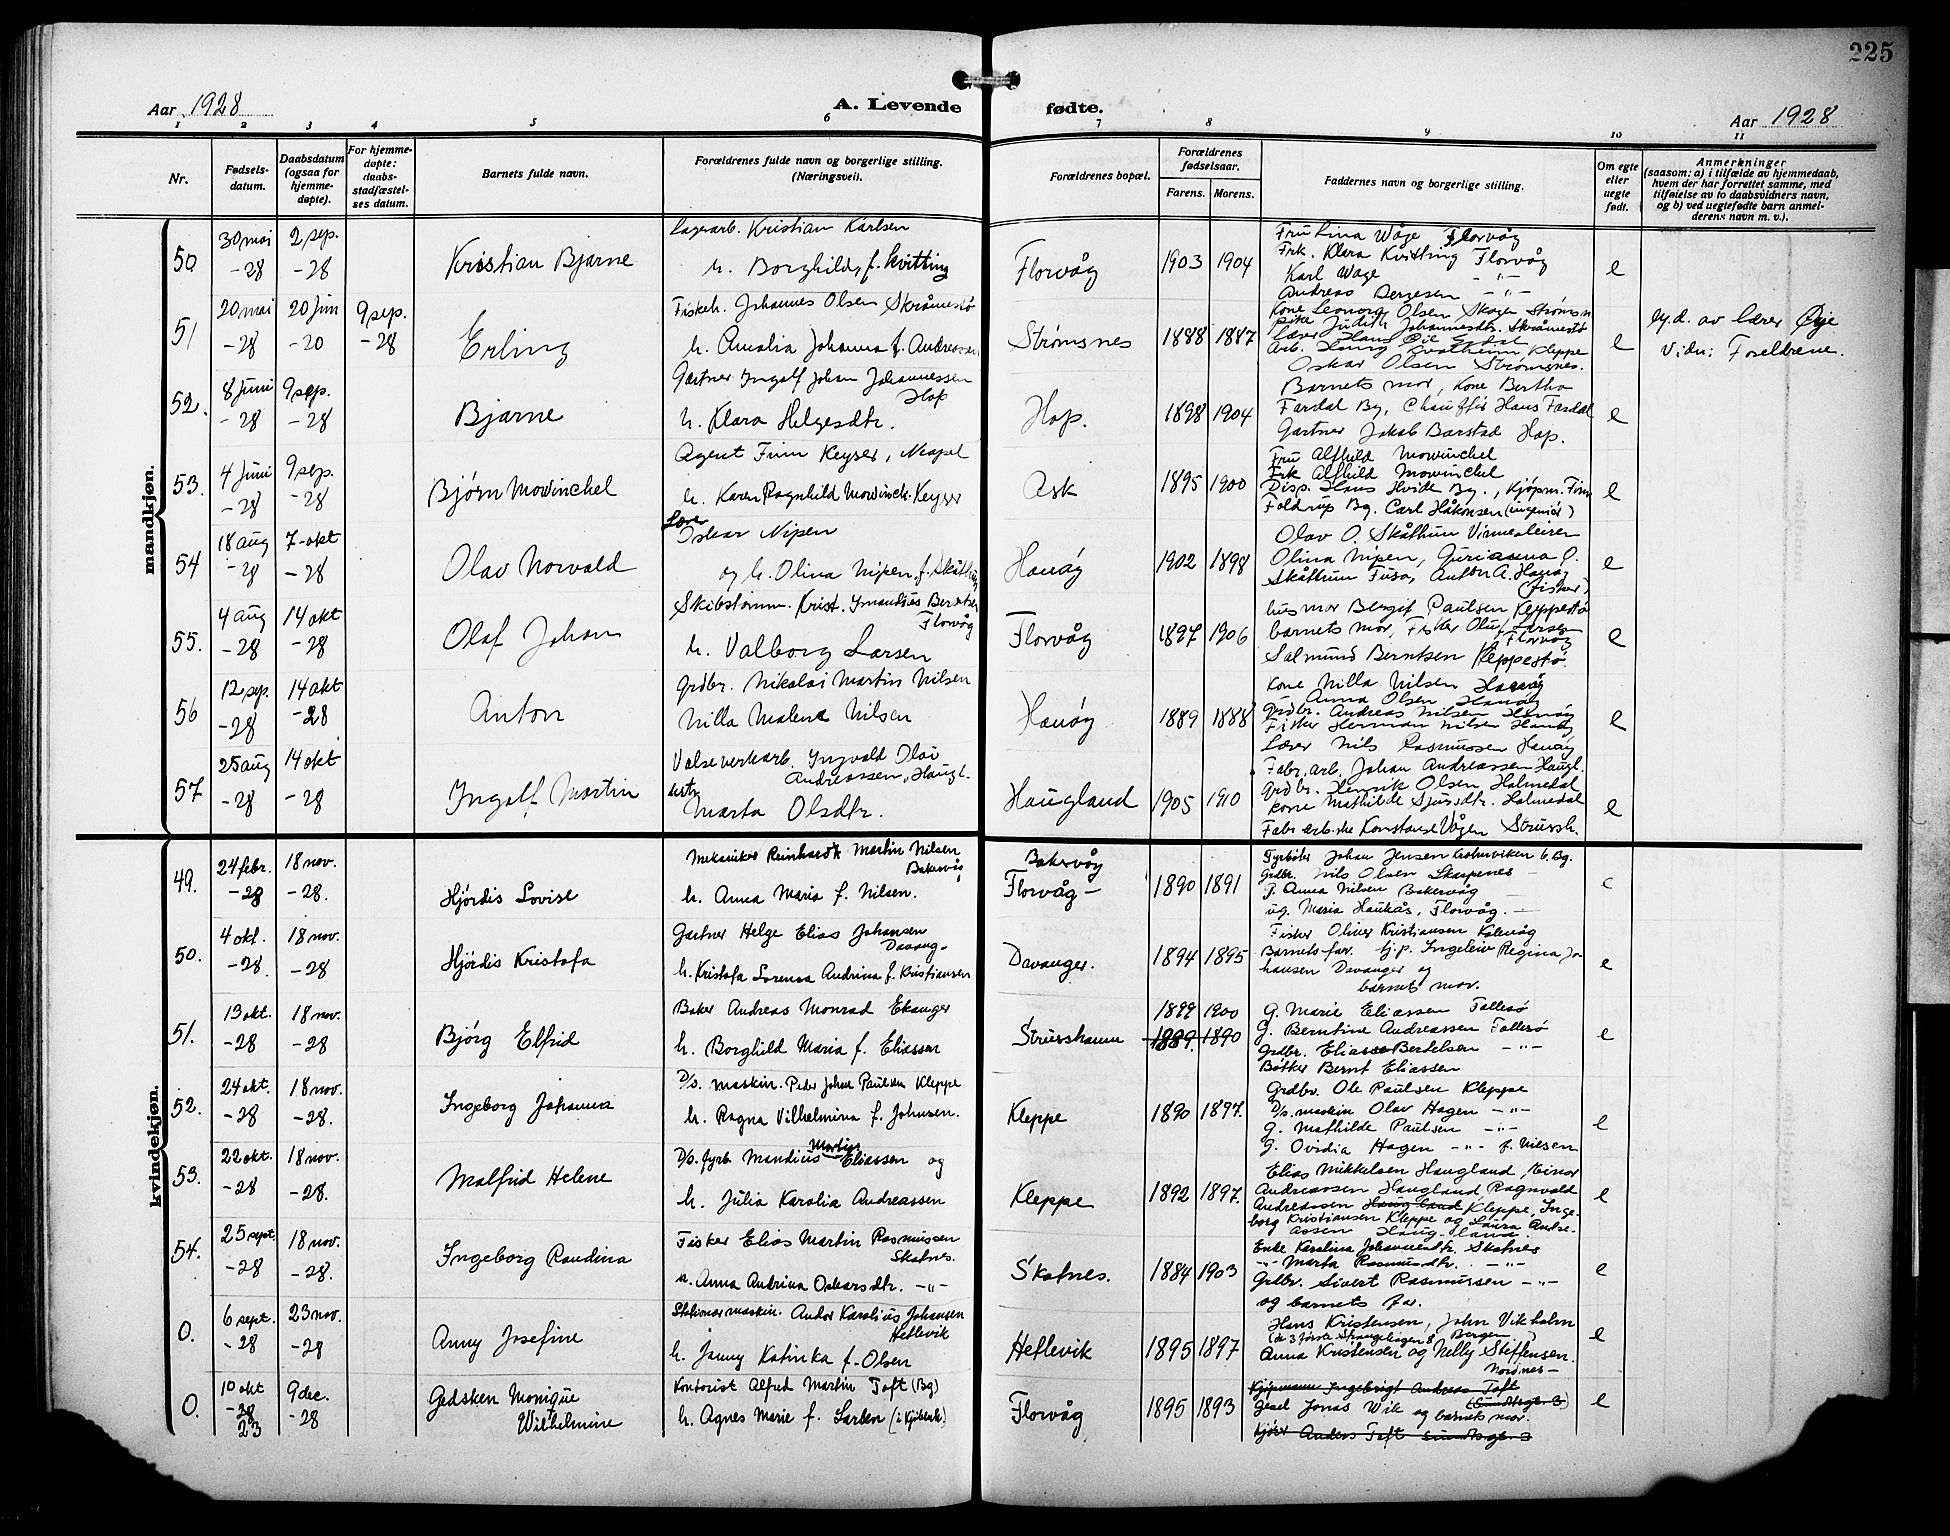 225
Aar 1928
A. Levende
fødte.
Aar 1928
1 2 3 4 5 6 7 8 9 10 11
Nr.
Fødsels-
datum.
Daabsdatum
(ogsaa for
hjemme-
døpte).
For hjemme-
døpte:
daabs-
stadfæstel-
ses datum.
Barnets fulde navn.
Forældrenes fulde navn og borgerlige stilling.
(Næringsvei).
Forældrenes bopæl.
Forældrenes
fødselsaar.
Farens. Morens.
Faddernes navn og borgerlige stilling.
Om egte
eller
uegte
født.
Anmerkninger
(saasom: a) i tilfælde av hjemmedaab,
hvem der har forrettet samme, med
tilføielse av to daabsvidners navn,
og b) ved uegtefødte barn anmel-
derens navn m. v.).
mandkjøn.
50
30 mai
-28
2 sep.
-28
Kristian Bjarne
Lagerarb. Kristian Karlsen
h. Borghild, f. Kvitting
Florvåg
1903 1904
Fru Lina Wåge Florvåg
Frk. Klara Kvitting Florvåg
Karl Wåge -"-
Andreas Bergesen -"-
e
51
20 mai
-28
20 juni
-20
9 sep.
-28
Erling
Fiskeh. Johannes Olsen Skråmestø
h. Amalia Johanna f. Andreassen
Strømsnes
1888 1887
Kone Leonora Olsen Skogen Strømsn
pike Judith Johannesdtr. Skråmestø
Kvalheim Kleppe
Oskar Olsen Strømsnes.
e
av lærer Øye
Vidn: Foreldrene.
52.
8 juni
-28
9 sep.
-28
Bjarne
Gartner Ingolf Johan Johannessen
Hop
h. Klara Helgesdtr.
Hop.
1898 1904
Barnets mor, Kone Bertha
Fardal By, Chauffør Hans Fardal
Gartner Jakob Barstad Hop.
e
53.
4 juni
-28
9 sep.
-28
Bjørn Mowinchel
Agent Finn Keyser, Neapel
h. Karen Ragnhild Mowinch. Keyser
Ask
1895 1900
Fru Alfhild Mowinchel
Frk Alfhild Mowinchel
Disp. Hans Hvide By., Kjøpm. Finn
Foldrup By. Carl Håkonsen (ingeniør)
e
54
18 aug
-28
7-okt
-28
Olav Norvald
Lærer
Oskar Nipen
og h. Olina Nipen, f. Skåthun
Hanøy
1902 1898
Olav O. Skåthun
Olina Nipen, O.
Skåthun Fusa, Anton A. Hanøy
(Fisker)
e
55.
4 aug
-28
14 okt
-28
Olaf Johan
Skibstømm. Krist. Berntsen
Florvåg
h. Valborg Larsen
Florvåg
1897 1906
husmor Bergit Paulsen Kleppestø
barnets mor, Fisker Oluf Larsen
Florvåg
Salmund Berntsen Kleppestø.
e
56
12 sep.
-28
14 okt
-28
Anton
Grdbr. Nikolai Martin Nilsen
Nilla Malene Nilsen
Hanøy
1889 1888
Kone Nilla Nilsen Hanøy
Anna Olsen Hanøy
Grdbr. Andreas Nilsen Hanøy
Fisker Herman Nilsen Hanøy
Lærer Nils Rasmussen Hanøy
e
57
25 aug
-28
14 okt
-28
Ingolf Martin
Valseverkarb. Ingvald Olai
Andreassen, Haugl.
hustr.
Marta Olsdtr.
Haugland
1905 1910
Fabr. arb. Johan Andreassen Haugl.
Grdbr. Henrik Olsen Holmedal
Kone Mathilde Sjursdtr. Holmedal
Fabr arb.ske Konstanse Vågen Strussh.
e
kvindekjøn.
49.
24 febr.
-28
18 nov.
-28.
Hjördis Lovise
Mekaniker Reinhardt Martin Nilsen
Bakervåg
h. Anna Maria f. Nilsen.
Bakervåg
Florvåg -
1890 1891
Fyrbøter Johan Jensen Krohnviken 6. Bg.
Grdbr. Nils Olsen Skarpenes -
G. Anna Nilsen Bakervåg -
ug. Maria Haukås, Florvåg. -
e
50.
4 okt.
-28.
18 nov.
-28
Hjördis Kristofa
Gartner Helge Elias Johansen
Davang-
h. Kristofa Lorensa Andrina f. Kristiansen
Davanger.
1894 1895
Fisker Oliver Kristiansen Kalvåg
Barnets far. hj.p. Ingeleiv Regina Jo-
hansen Davanger og
barnets mor.
e
51.
13 okt.
-28
18 nov.
-28
Bjørg Elfrid
Baker Andreas Monrad Ekanger
h. Borghild Maria f. Eliassen
Strusshamn
1899 1900
1889. 1890
G. Marie Eliassen Follesø
G. Berntine Andreassen Follesø
Grdbr. Elias Bertelsen -"-
Bøtker Bernt Eliassen
e
52.
24 okt.
-28
18 nov.
-28.
Ingeborg Johanna
D/s. maskin. Peder Johan Paulsen Kleppe
h. Ragna Vilhelmina f. Johnsen.
Kleppe
1890 1897.
Grdbr. Ole Paulsen Kleppe
D/s. maskin Olav Hagen -"-
G. Mathilde Paulsen -"-
G. Ovidia Hagen -"- f. Nilsen
e
53.
22 okt.
-28
18 nov.
-28.
Malfrid Helene
D/s. fyrb. Mandius Martin Eliassen og
h. Julia Karolia Andreassen
Kleppe
1892 1897.
Elias Mikkelsen Haugland, Einar
Andreassen Haugland, Ragnvald
Andreassen Haugland Kleppe, Inge-
borg Kristiansen Kleppe og Laura Andre-
assen Haugland.
e
54.
25 sept.
-28
18 nov.
-28.
Ingeborg Randina
Fisker Elias Martin Rasmussen
Skatnes.
h. Anna Andrina Oskarsdtr. -"-
Skatnes.
1884 1903
Enke Karolina Johannesdtr. Skatnes
-"- Marta Rasmusdtr. -"-
Grdbr. Sivert Rasmussen -"-
og barnets far.
e
0.
6 sept.
-28
23 nov.
-28
Anny Josefine
Stationærmaskin. Andor Karolius Johansen
Hetlevik
h. Jenny Katinka f. Olsen
Hetlevik
1895 1897
Hans Kristensen, John Vikholm
(de 3 første Strangehagen 8 Bergen)
Anna Kristensen og Nelly Steffensen.
Nordnes-
e
0.
10 okt
-28
23
9 dec.
-28
Gedsken Monique
Wilhelmine
Kontorist Alfred Martin Toft (Bg)
h. Agnes Marie f. Larsen (i Kjøbenh.)
Florvåg
1895 1893
Kjøpmann Ingebrigt Andreas Toft
Jonas Wik og barnets mor.
Anders Toft
e